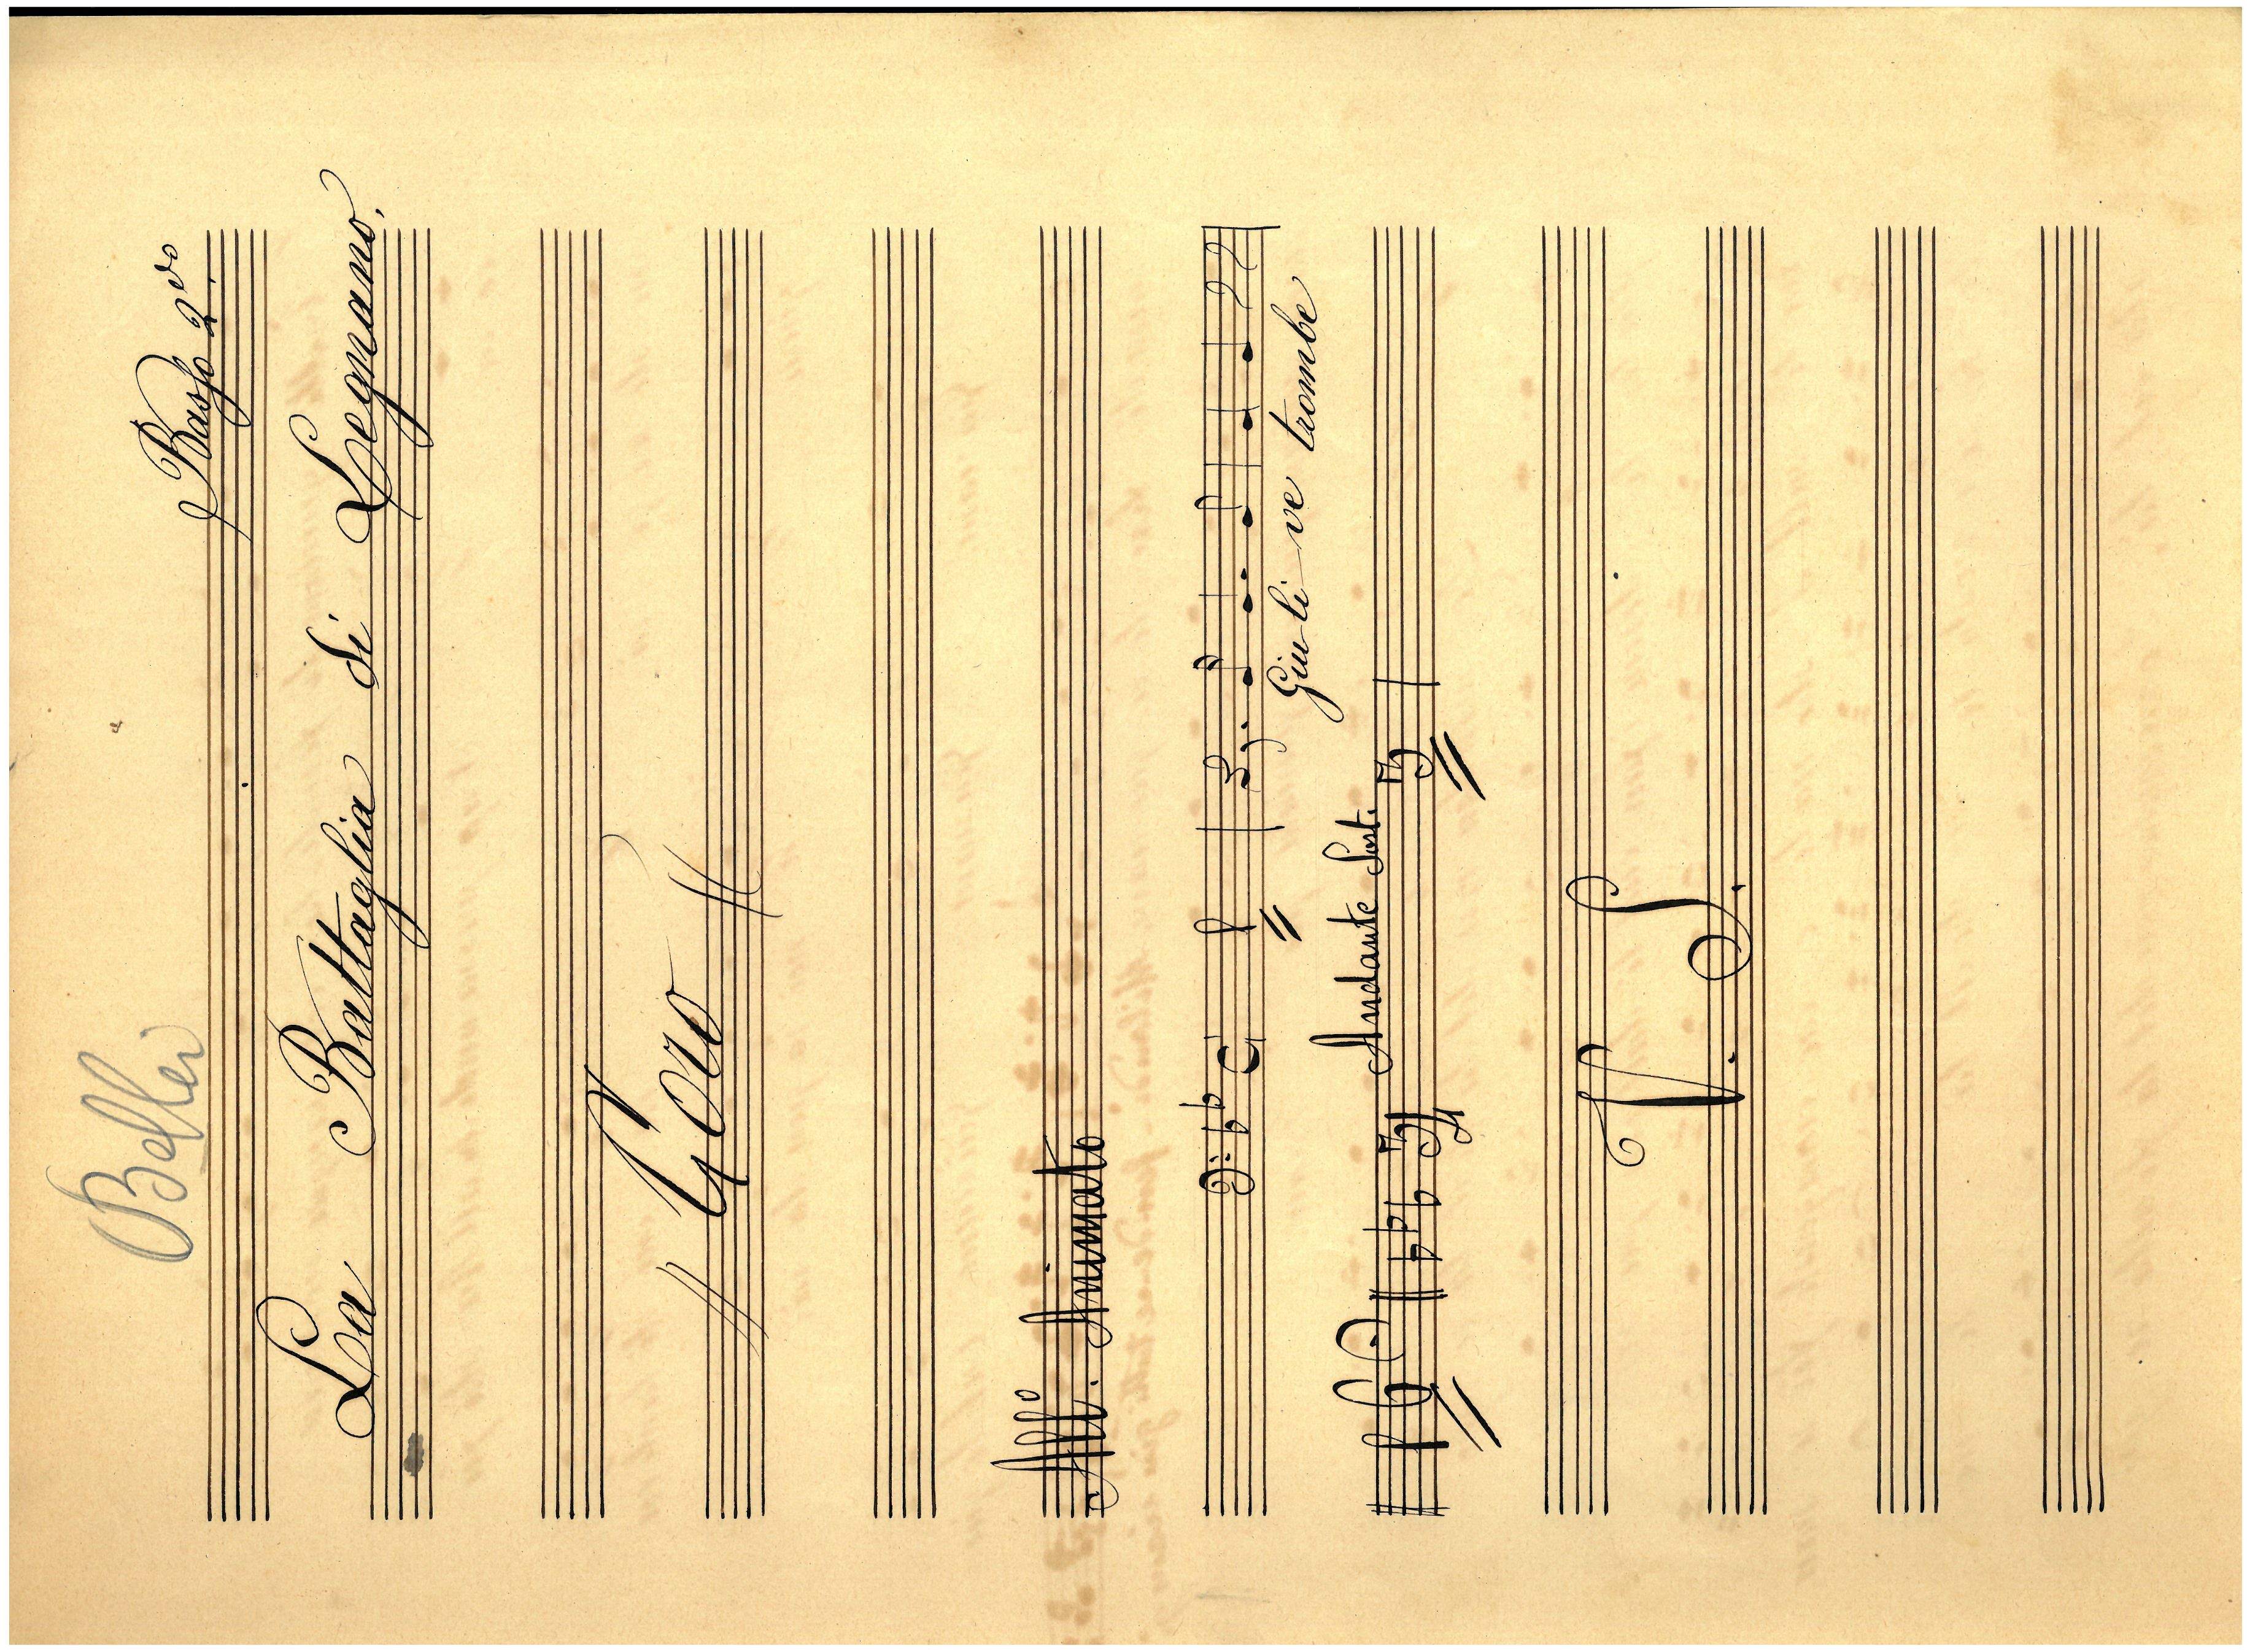 Basso 2do.
La Battaglia di Legnano.
// Coro //
Allo. Animato
Giu-li-ve trombe
Andante Sost.
3 4 3
V. S.